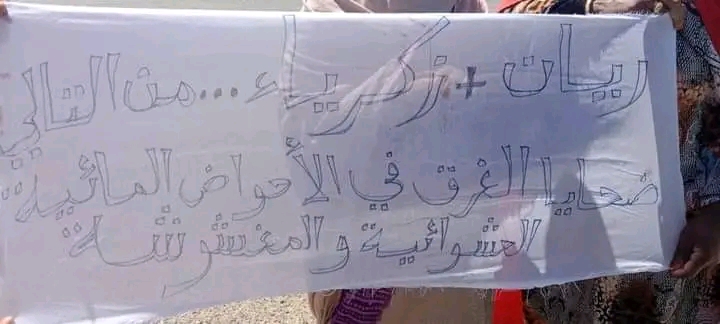 ريان + زكرياء ... من التالي
ضحايا الغرق في الأحواض المائية
العشوائية والمغشوشة